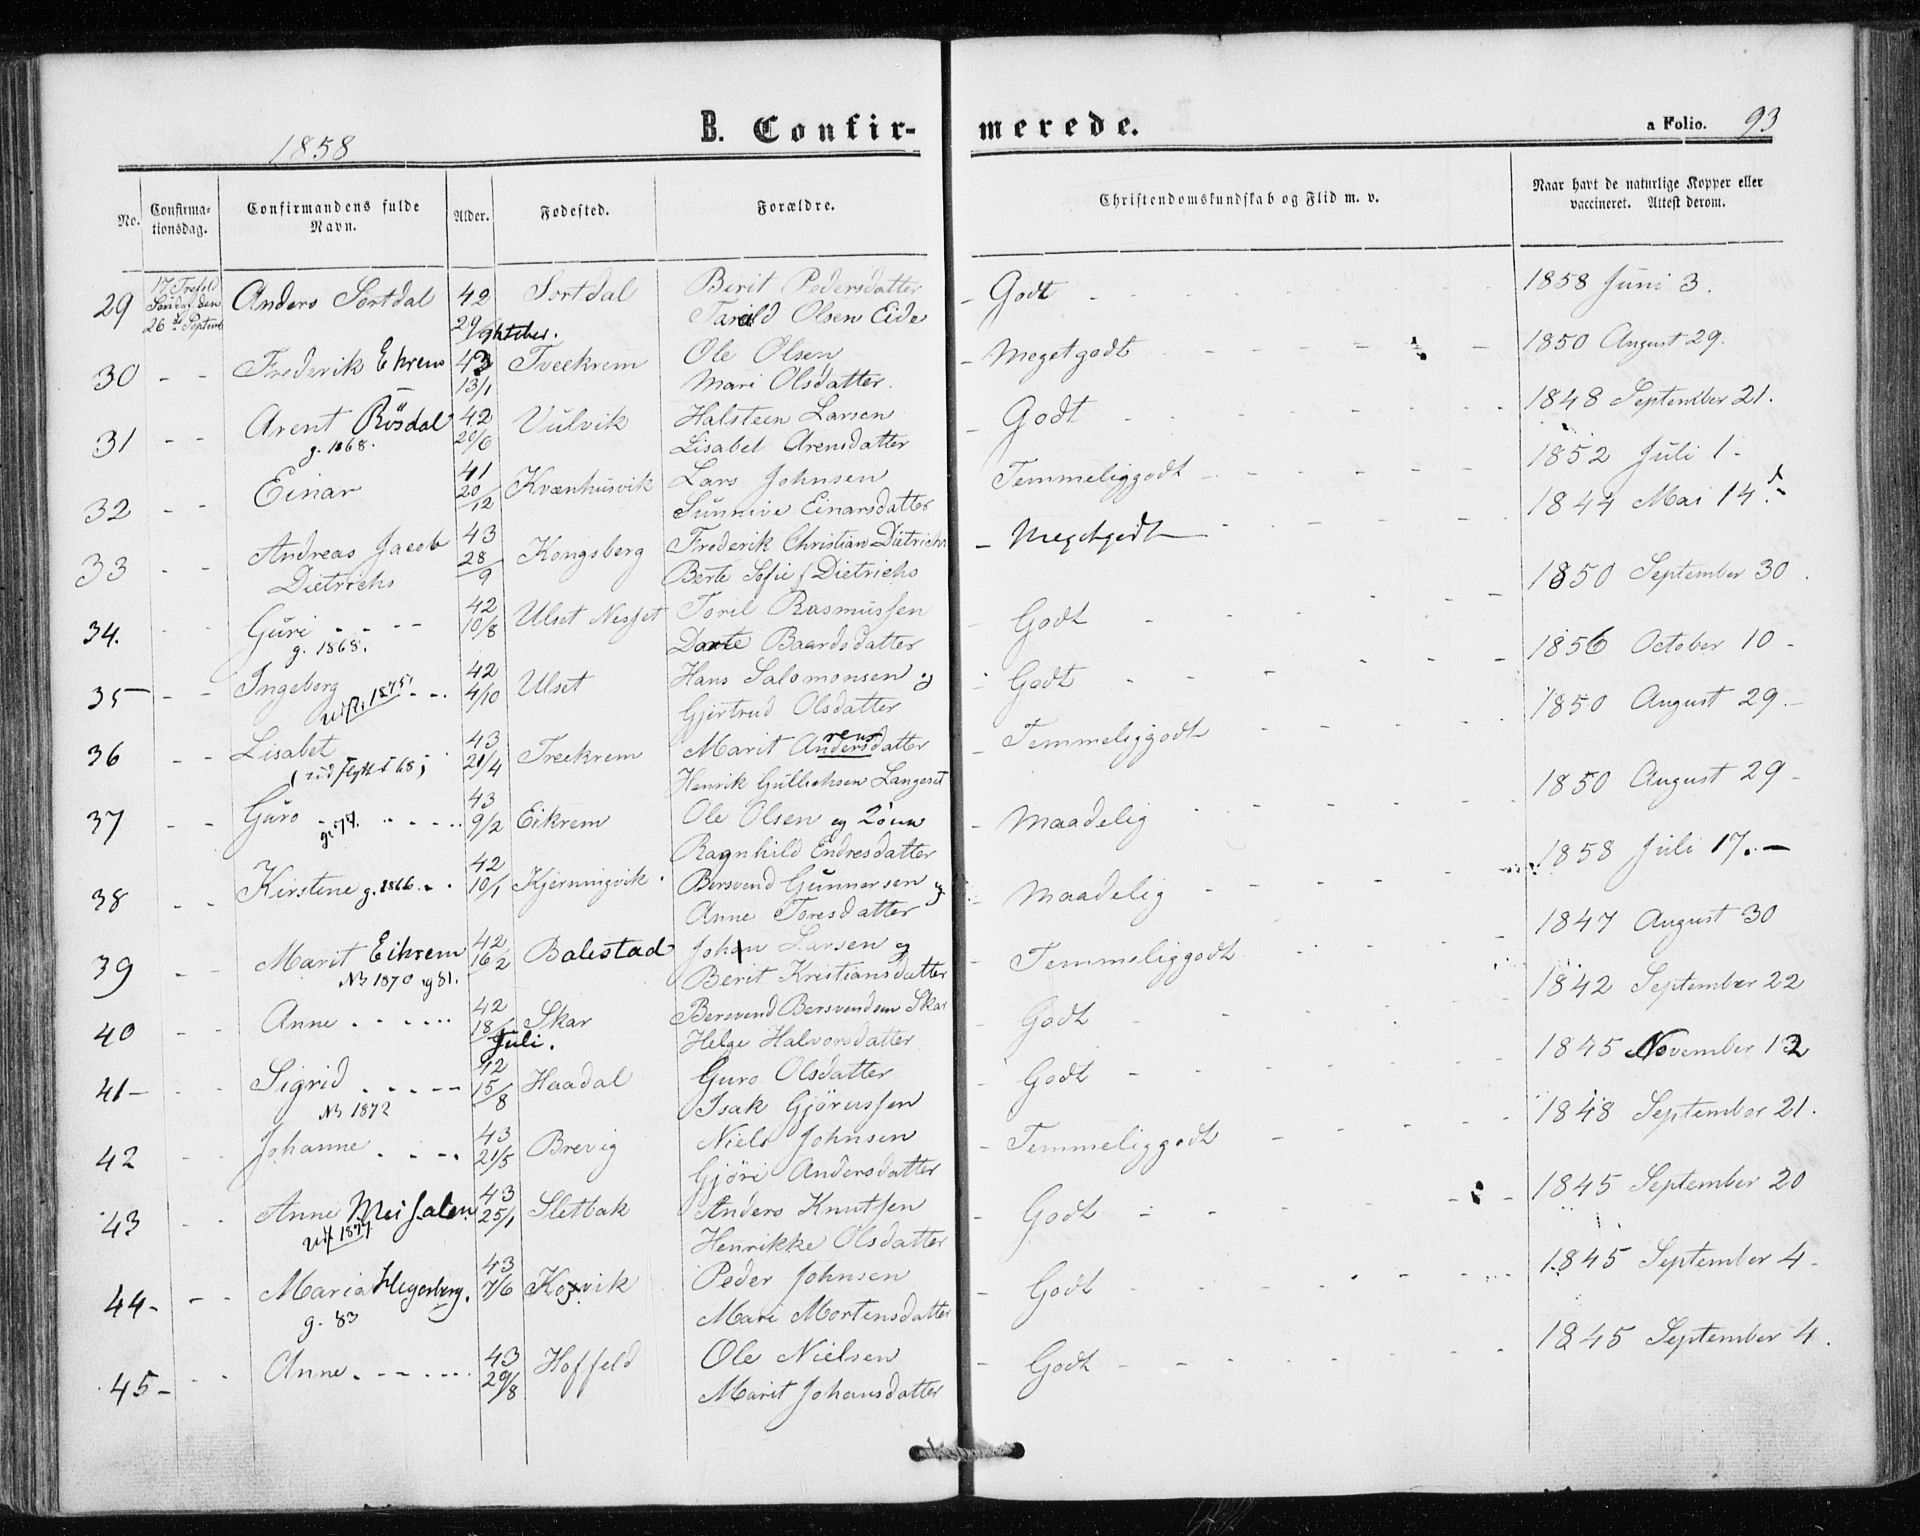 1858
B. Confirmerede.
a Folio. 93
No. Confirmationsdag. Confirmandens fulde Navn. Alder. Fødested. Forældre. Christendomskundskab og Flid m. v. Naar havt de naturlige Kopper eller vaccineret. Attest derom.
29 17 Trefold Søndag den 26de Septemb Anders Sortdal 42 29/Oktober. Sortdal Berit Pedersdatter - Godt 1858 Juni 3.
Tarald Olsen Eide
30 - - Frederik Ekrem 43 13/1 Tveekrem Ole Olsen - Megetgodt 1850 August 29.
Mari Olsdatter.
31 - - Arent Rösdal 42 20/6 Vulvik Halsteen Larsen - Godt 1848 September 21.
g. 1868. Lisabet Arensdatter
32 - - Einar 41 20/12 Kvænhusvik Lars Johnsen Temmeliggodt 1852 Juli 1-
Sunnive Einarsdatter
33 - - Andreas Jacob 43 28/9 Kongsberg Frederik Christian Dietrichs - Megetgodt 1844 Mai 14
Dietrichs Berte Sofie f Dietrichs
34. - - Guri 42 10/8 Ulset Nesset Toril Rasmussen Godt 1850 September 30.
g. 1868. Dorte Baardsdatter
35 - - Ingeborg 42 4/10 Ulset Hans Salomonsen og - Godt 1856 October 10 -
1875 Gjertrud Olsdatter
36 - - Lisabet 43 21/4 Treekrem Marit Andersdatter - Temmeliggodt 1850 August 29.-
(udflytt 68) Henrik Gullichsen Langeset
37 - - Guro 43 9/2 Eikrem Ole Olsen og - Maadelig 1850 August 29-
g. 77. Ragnhild Endresdatter
38 - - Kirstene g. 1866 42 10/1 Kjerringvik Bersvend Gunnersen og Maadelig 1858 Juli 17.-
Anne Toresdatter
39 - - Marit Eikrem 42 16/2 Bolestad Johan Larsen og - Temmeliggodt 1847 August 30
NB 1870 og 81. Berit Kristiansdatter
40 - - Anne 42 18/Juli. Skar Bersvend Bersvendsen Skar - Godt 1842 September 22
Helge Halvorsdatter
41- - - Sigrid 42 15/8 Haadal Guro Olsdatter - Godt 1845 November 12
NB 1872 Isak Gjörussen
42 - - Johanne 43 21/5 Brevig Niels Johnsen - Temmeliggodt 1848 September 21.
Gjöri Andersdatter
43 - - Anne Meisalen 43 25/1 Sletbak Anders Knutsen - Godt 1845 September 20
1877 Henrikke Olsdatter
44- - - Maria Hegerberg. 43 7/6 Korsvik Peder Johnsen - Godt 1845 September 4-
g. 83 Mari Mortensdatter
45- - - Anne 43 29/8 Hoffeld Ole Nielsen - Godt 1845 September 4.
Marit Johansdatter